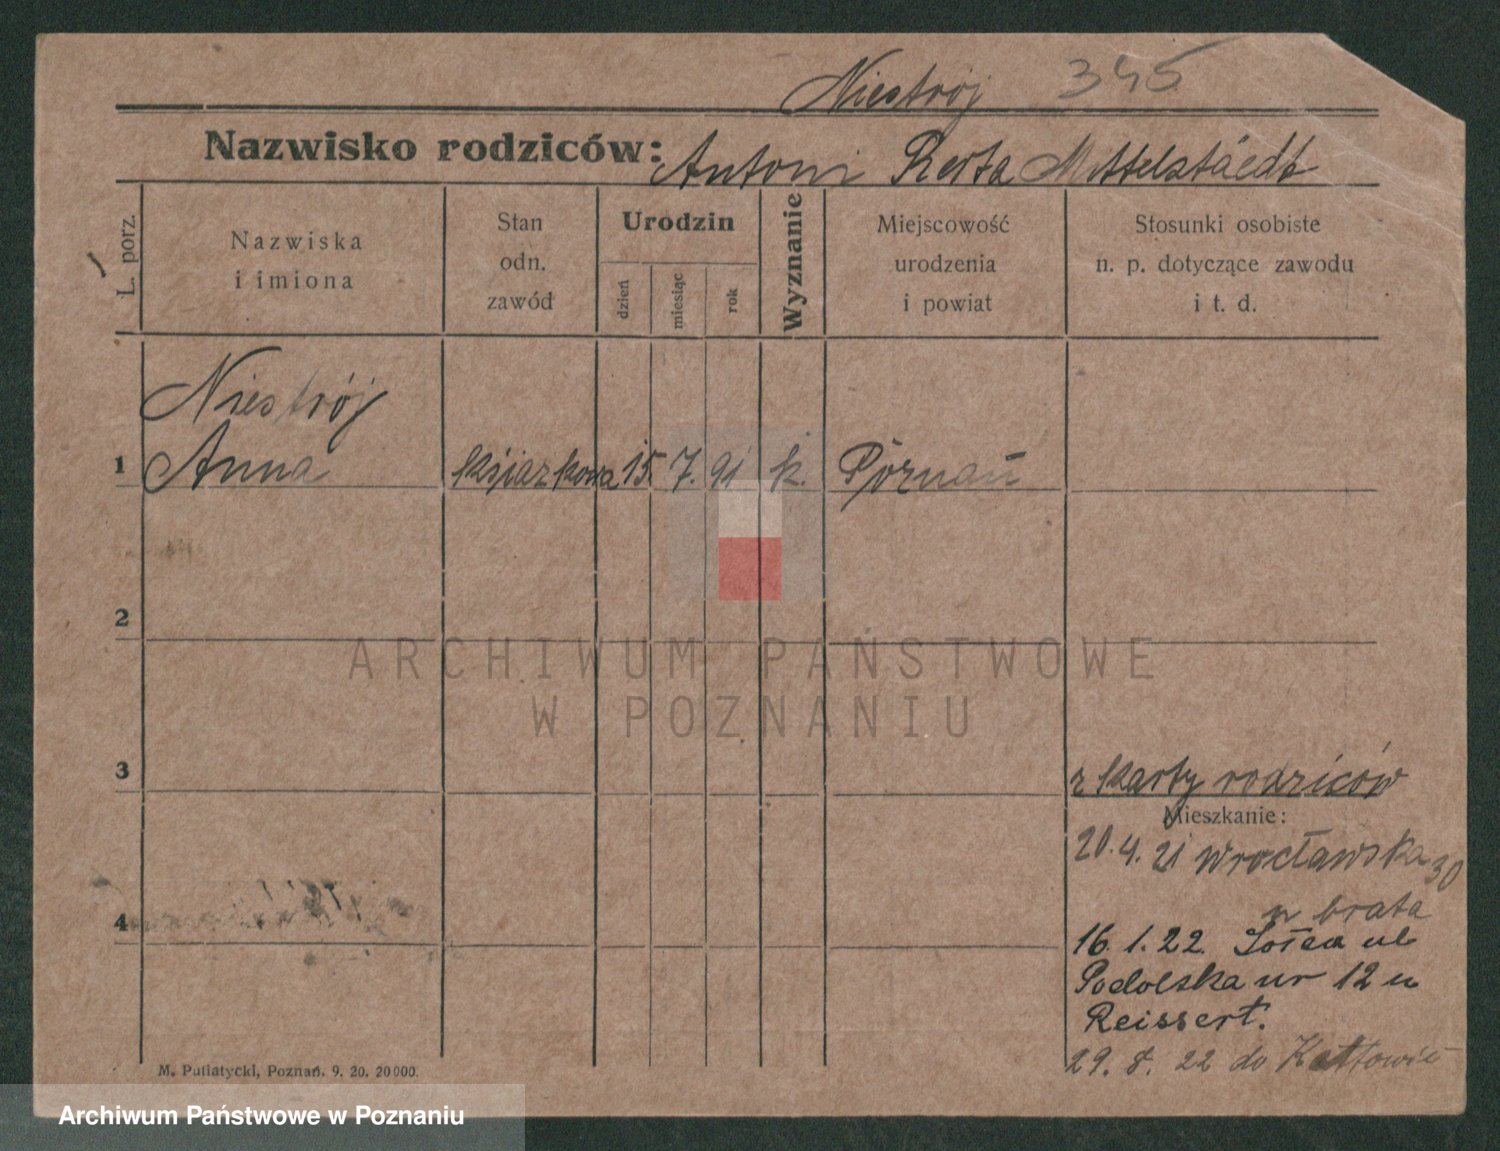 Niestrój 345
Nazwisko rodziców: Antoni Berta Mittelstäedt
L. porz.
Nazwiska
i imiona
Stan
odn.
zawód
Urodzin
dzień
miesiąc
rok
Wyznanie
Miejscowość
urodzenia
i powiat
Stosunki osobiste
n. p. dotyczące zawodu
i t. d.
Niestrój
1 Anna książkowa 15. 7. 91 k. Poznań
2
3
z karty rodziców
Mieszkanie:
20.4.21 Wrocławska 30
u brata
4
16.1.22. Sołacz ul
Podolska nr 12 u
Reissert.
29. 8. 22 do Kattowic
M. Putiatycki, Poznań. 9. 20. 20 000.
ARCHIWUM PAŃSTWOWE
W POZNANIU
Archiwum Państwowe w Poznaniu